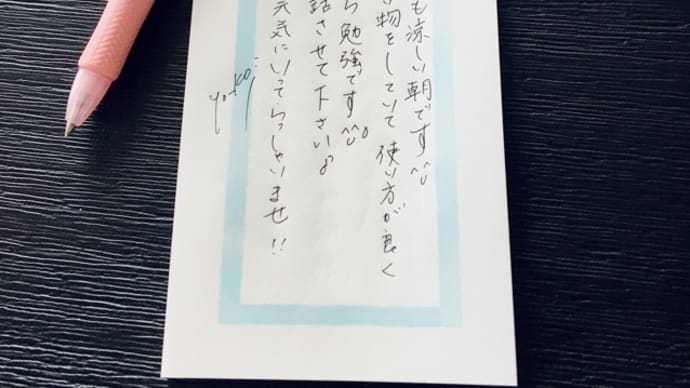 も涼しい朝です^^
物をしていて使い方が良く
ら勉強です^^。
話させて下さい♪
元気にいってらっしゃいませ!!